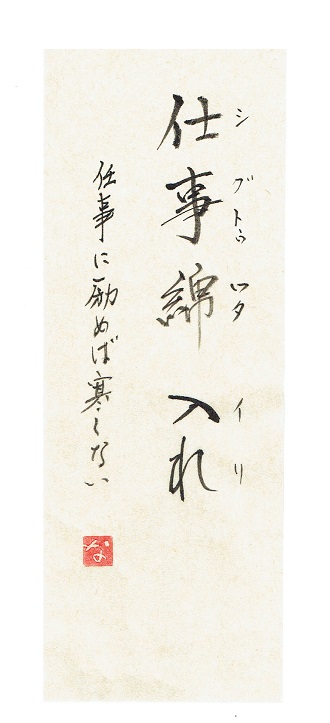 シブトゥワタイリ
仕事綿入れ
仕事に励めば寒くない
な